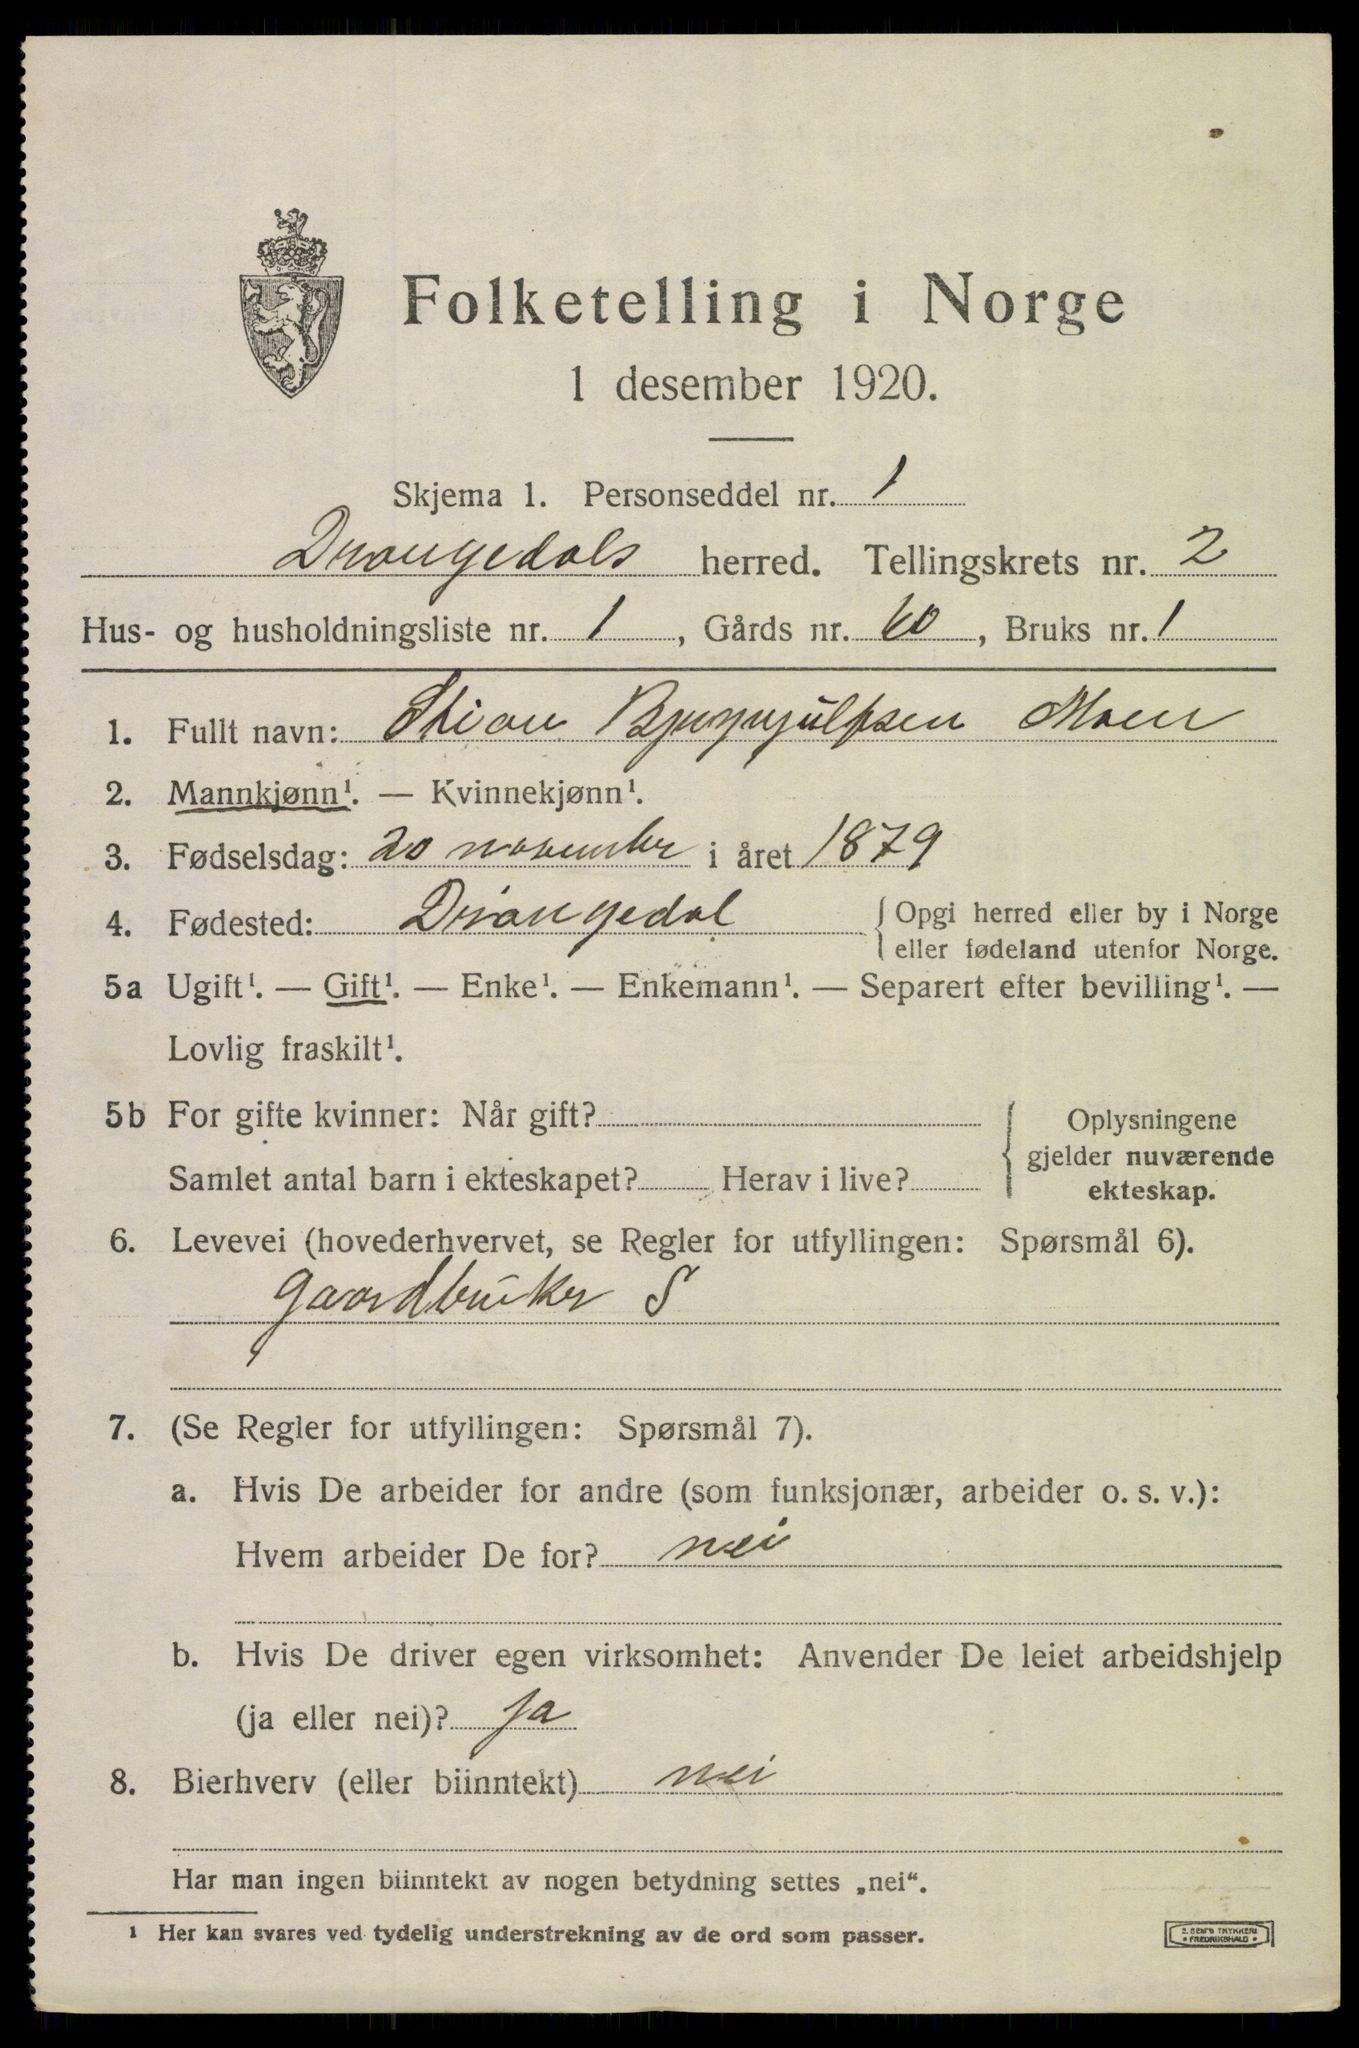 Folketelling i Norge
1 desember 1920.
Skjema 1. Personseddel nr. 1
Drangedals herred. Tellingskrets nr. 2
Hus- og husholdningsliste nr. 1, Gårds nr. 60, Bruks nr. 1
1. Fullt navn: Moen
2. Mannkjønn¹. — Kvinnekjønn¹.
3. Fødselsdag: 20 november i året 1879
4. Fødested: Drangedal { Opgi herred eller by i Norge
eller fødeland utenfor Norge.
5a Ugift¹. — Gift¹. — Enke¹. — Enkemann¹. — Separert efter bevilling¹. —
Lovlig fraskilt¹.
5b For gifte kvinner: Når gift?
Samlet antal barn i ekteskapet? Herav i live?
{ Oplysningene
gjelder nuværende
ekteskap.
6. Levevei (hovederhvervet, se Regler for utfyllingen: Spørsmål 6).
gaardbruker S
7. (Se Regler for utfyllingen: Spørsmål 7).
a. Hvis De arbeider for andre (som funksjonær, arbeider o. s. v.):
Hvem arbeider De for? nei
b. Hvis De driver egen virksomhet: Anvender De leiet arbeidshjelp
(ja eller nei)? ja
8. Bierhverv (eller biinntekt) nei
Har man ingen biinntekt av nogen betydning settes „nei“.
¹ Her kan svares ved tydelig understrekning av de ord som passer.
FREDRIKSHALD